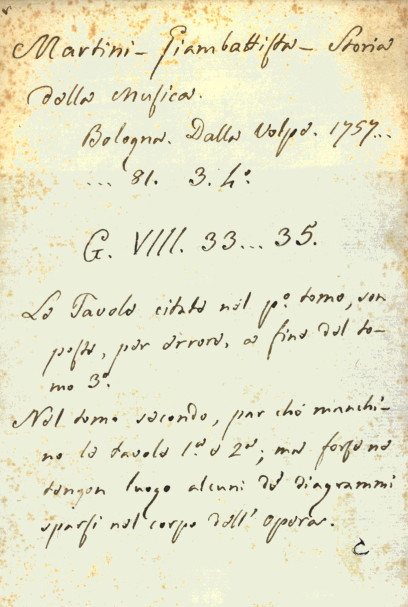 Martini - Giambattista - Storia
della Musica.
Bologna. Dalla Volpe. 1757...
... 81. 3. 4.º
G. VIII. 33... 35.
Le Tavole citate nel p.º tomo, son
poste, per errore, a fine del to-
mo 3.º
Nel tomo secondo, par che manchi-
no le tavole 1.ª e 2.ª; ma forse ne
tengon luogo alcuni de' diagrammi
sparsi nel corpo dell'Opera.
C